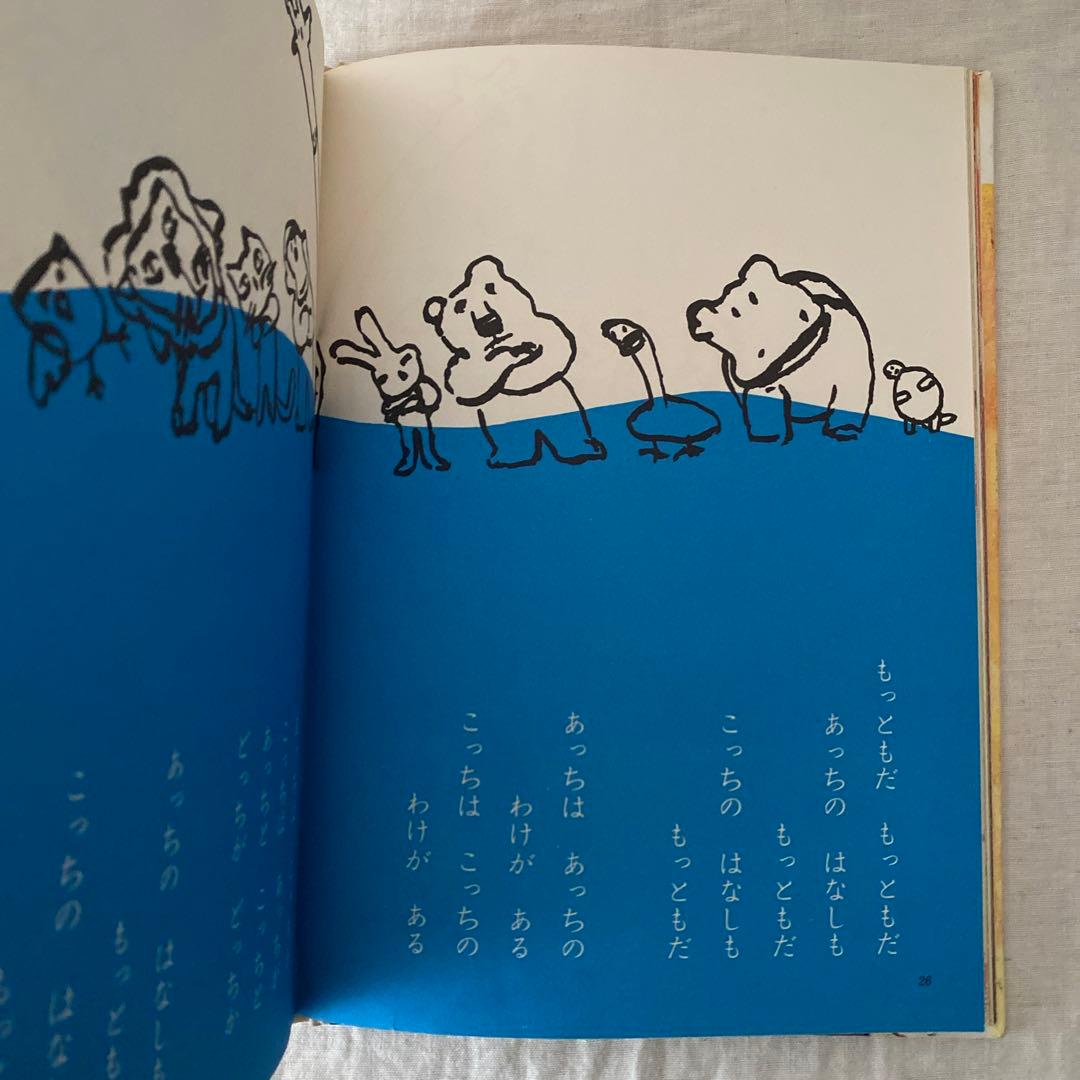 もっともだ もっともだ
あっちの はなしも
もっともだ
こっちの はなしも
もっともだ
あっちは あっちの
わけが ある
こっちは こっちの
わけが ある
26
あっちと こっちと
どっちが どっちが
あっちの はなしも
もっとも
こっちの はな